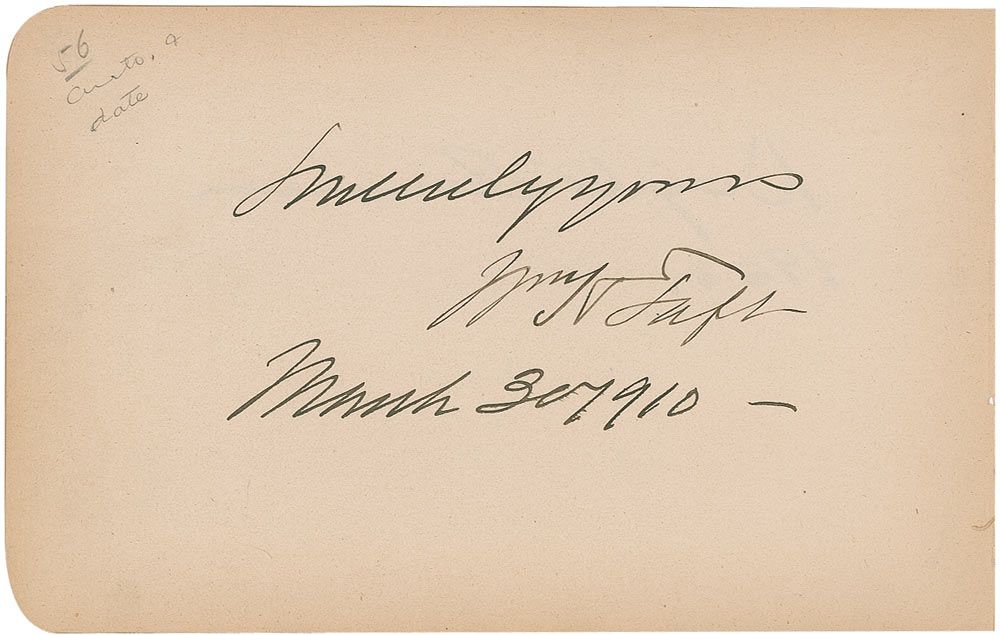 56
auto. &
date
Sincerely yours
Wm H Taft
March 30 1910 —